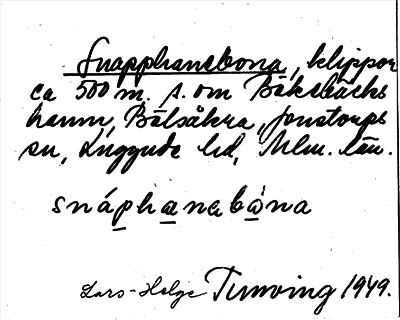 Snapphanebona, klippor
ca 500 m. s. om Bäckebäcks
hamn, Bölsåkra, Jonstorps
sn, Luggude hd, Mlm. län.
snáphanabóna
Lars-Helge Tunving 1949.